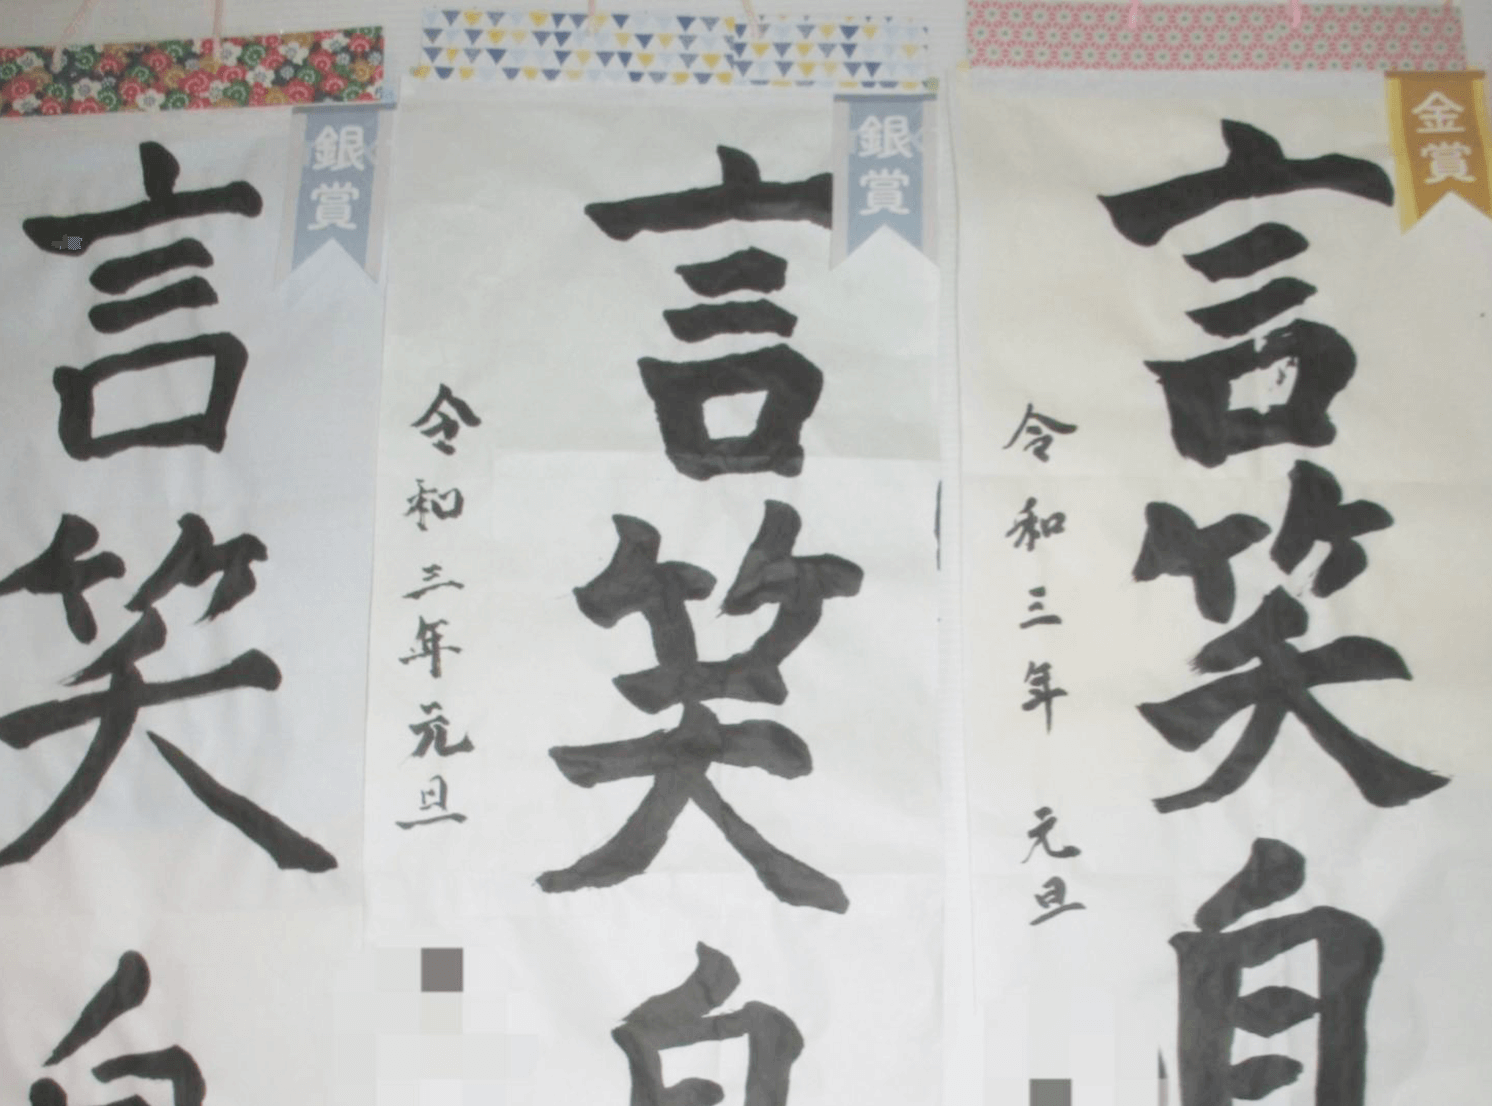 金賞
言笑自
令和三年元旦
銀賞
言笑自
令和三年元旦
銀賞
言笑自